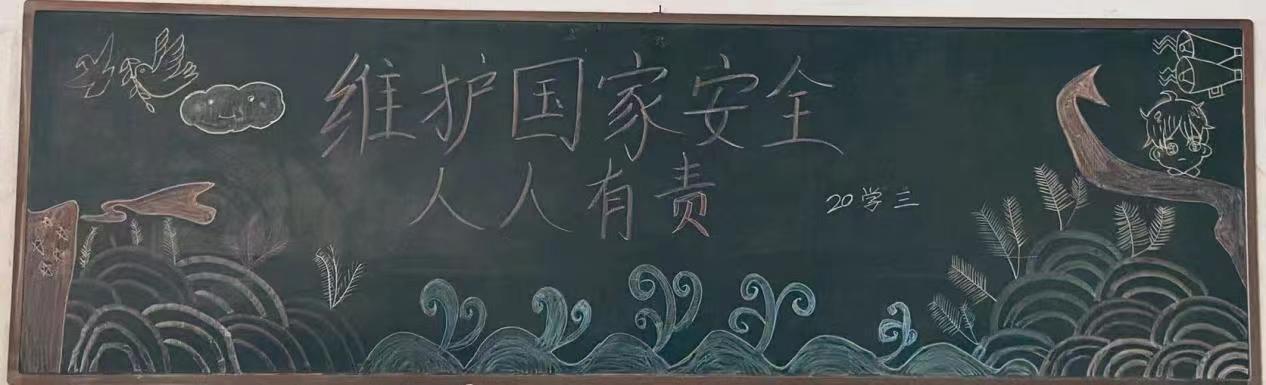 维护国家安全
人人有责
20学三